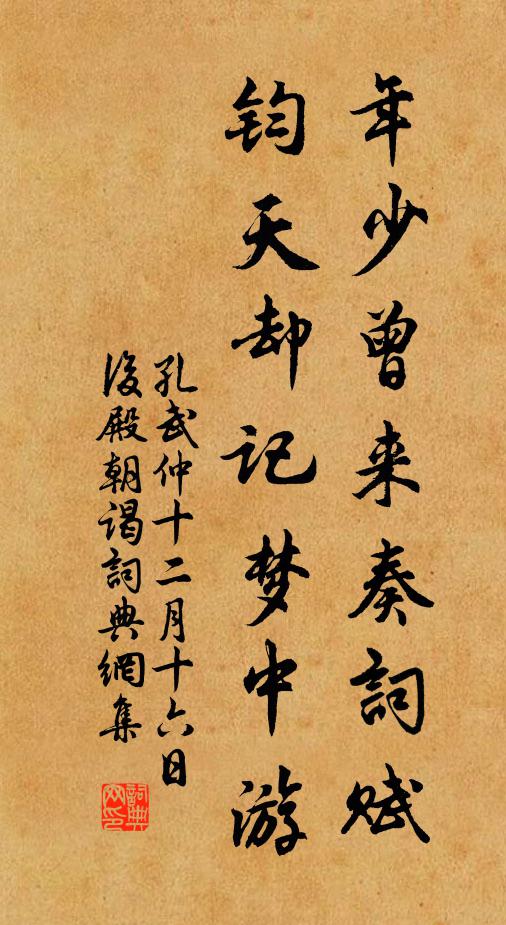 年少曾来奏詞赋
钧天却记梦中游
孔武仲十二月十六日
後殿朝谒詞典網集
詞典网印